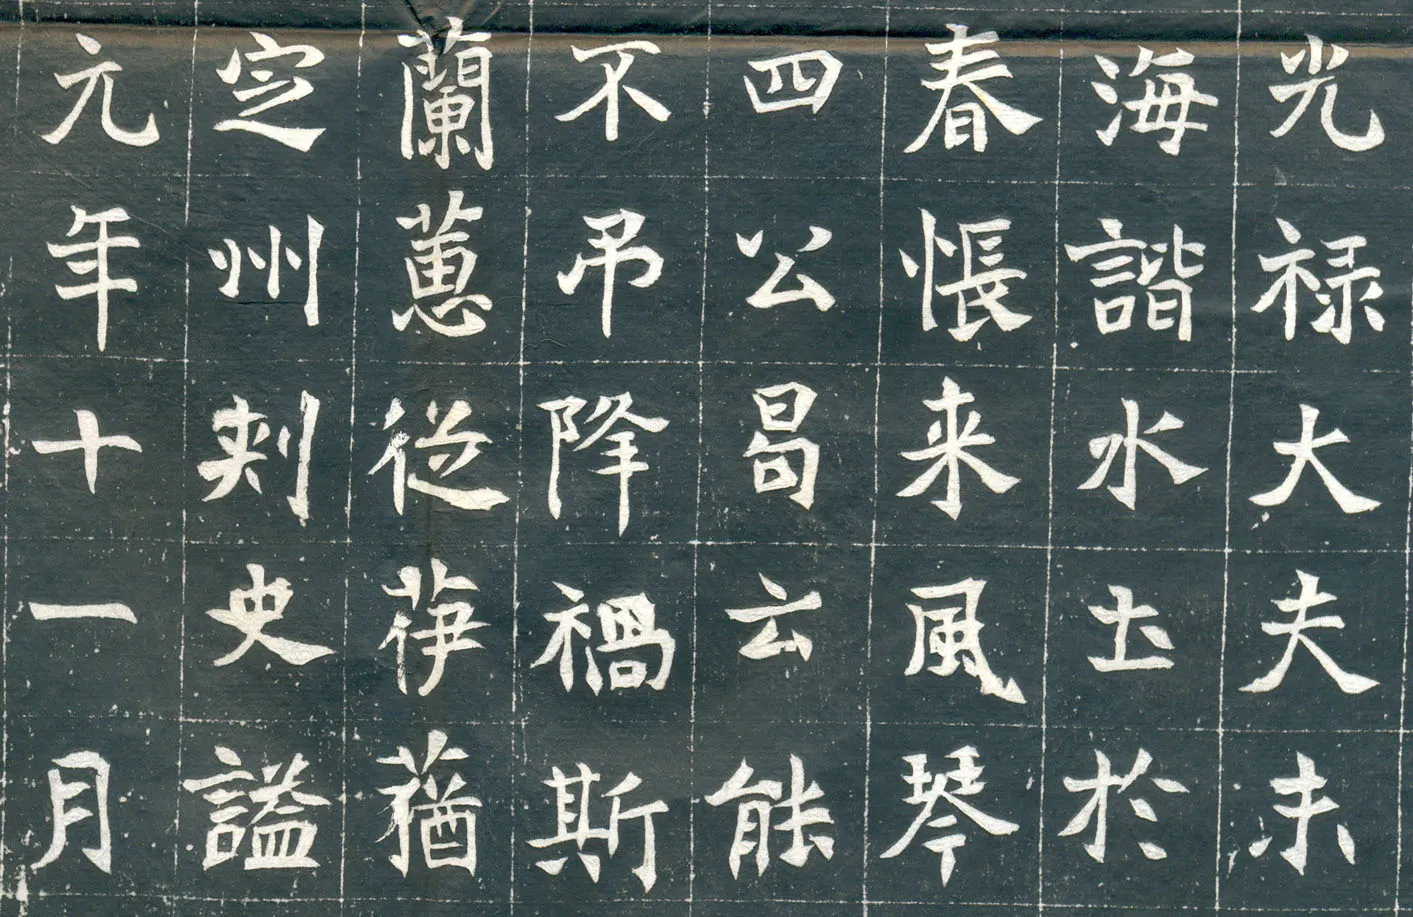 光禄大夫未
海諧水土於
春悵来風琴
四公曷云能
不吊降禍斯
蘭蕙從蕕
定州刺史謚
元年十一月